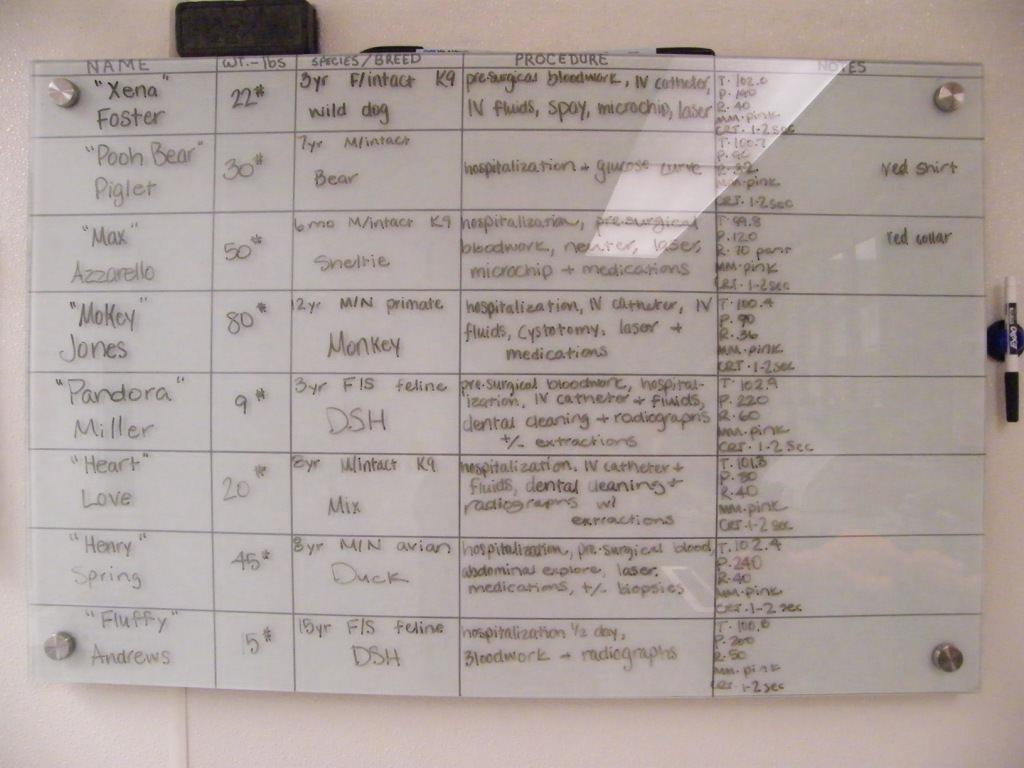 NAME WT.-lbs SPECIES/BREED PROCEDURE NOTES
"Xena" Foster
22#
3yr F/intact K9
wild dog
presurgical bloodwork, IV catheter,
IV fluids, spay, microchip, laser
T. 102.0
R. 40
MM.pink
CRT. 1-2sec
"Pooh Bear"
Piglet
30#
7yr M/intact
Bear
hospitalization + glucose curve
T. 100.7
R. 32
MM.pink
CRT. 1-2sec
red shirt
"Max"
Azzarello
50#
6mo M/intact K9
Sheltie
hospitalization, pre-surgical
bloodwork, neuter, laser,
microchip + medications
T. 99.8
P. 120
R. 70 pant
MM.pink
CRT. 1-2sec
red collar
"Mokey"
Jones
80#
12yr M/N primate
Monkey
hospitalization, IV catheter, IV
fluids, cystotomy, laser +
medications
T. 100.4
P. 90
R. 36
MM.pink
CRT. 1-2sec
"Pandora"
Miller
9#
3yr F/S feline
DSH
pre-surgical bloodwork, hospital-
ization, IV catheter + fluids,
dental cleaning + radiographs
+/- extractions
T. 102.9
P. 220
R. 60
MM.pink
CRT. 1-2 sec
"Heart"
Love
20#
8yr M/intact K9
Mix
hospitalization, IV catheter +
fluids, dental cleaning +
radiographs w/
extractions
T. 101.3
P. 80
R. 40
MM.pink
CRT. 1-2 sec
"Henry"
Spring
45#
8yr M/N avian
Duck
hospitalization, pre-surgical blood,
abdominal explore, laser,
medications, +/- biopsies
T. 102.4
P. 240
R. 40
MM.pink
CRT. 1-2 sec
"Fluffy"
Andrews
5#
15yr F/S feline
DSH
hospitalization 1/2 day,
Bloodwork + radiographs
T. 100.6
P. 200
R. 50
MM.pink
CRT. 1-2 sec
EXPO